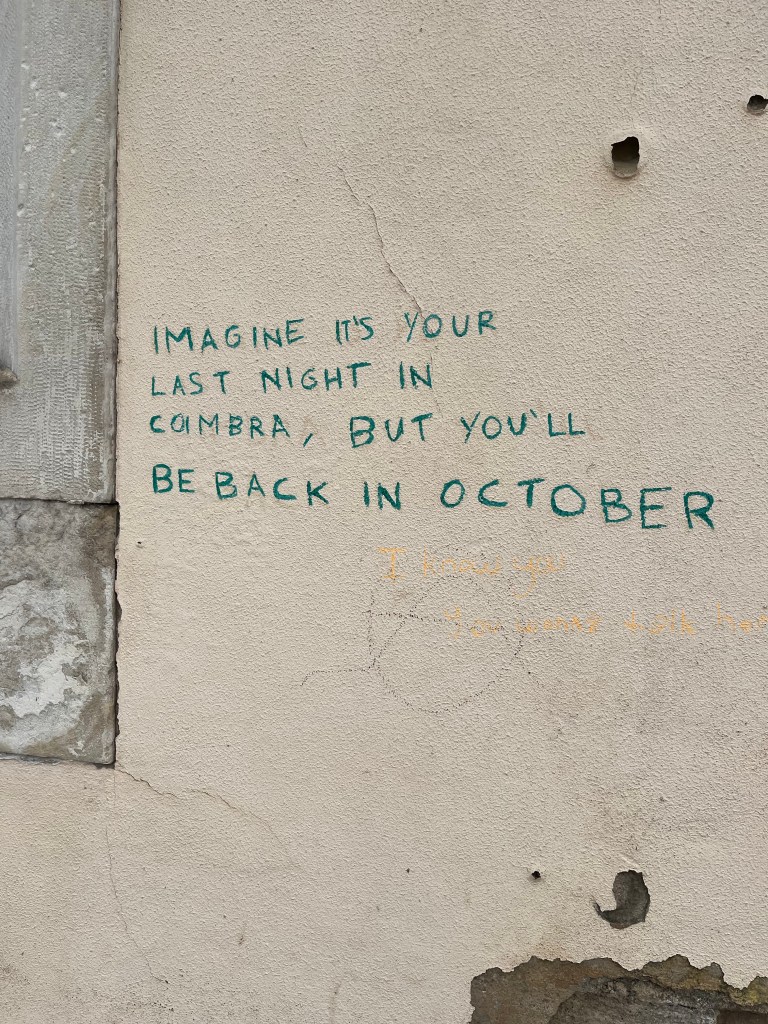 IMAGINE IT'S YOUR
LAST NIGHT IN
COIMBRA, BUT YOU'LL
BE BACK IN OCTOBER
I know you
You